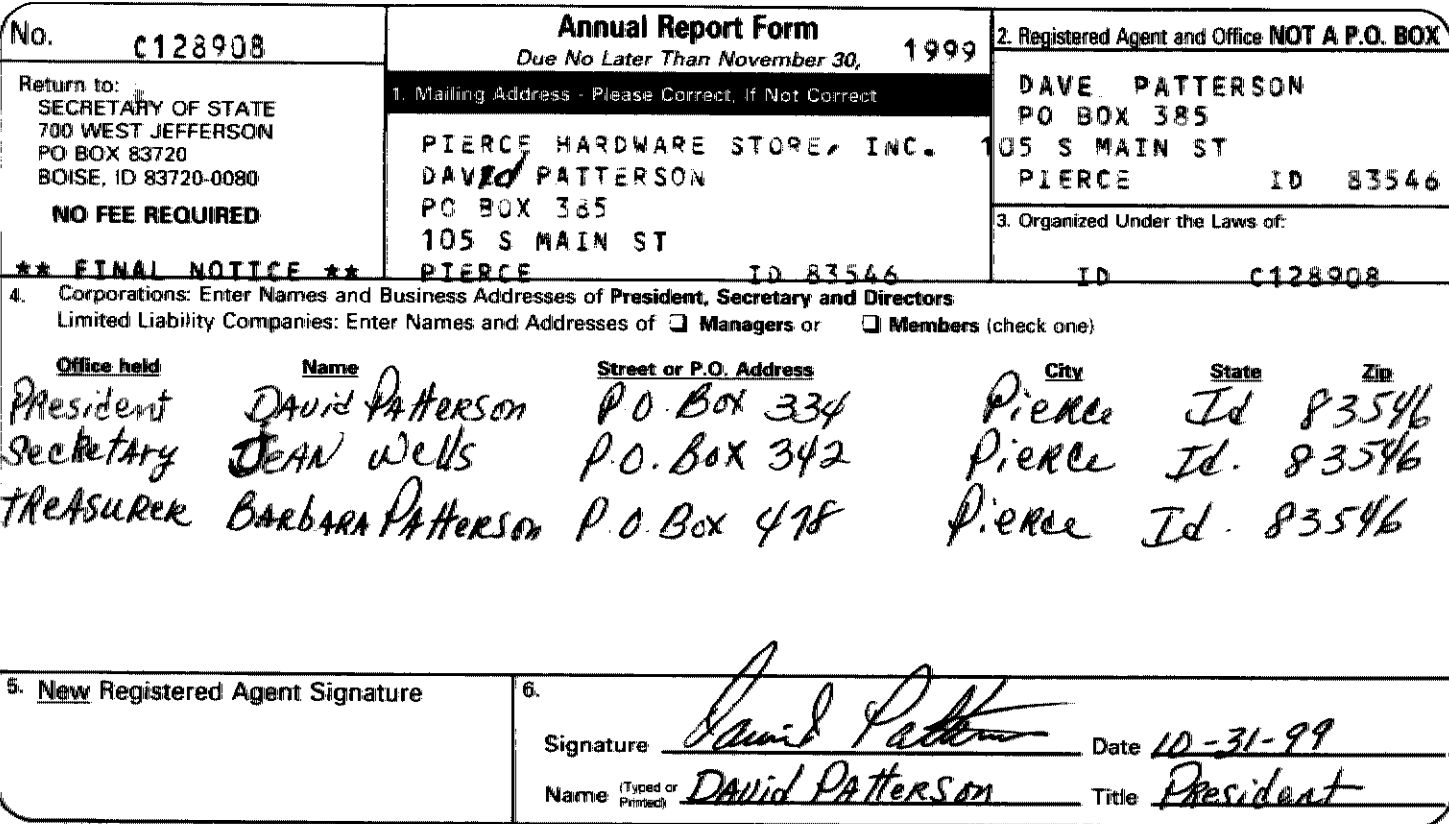 No. C128908
Return to:
SECRETARY OF STATE
700 WEST JEFFERSON
PO BOX 83720
BOISE, ID 83720-0080
NO FEE REQUIRED
** FINAL NOTICE **
Annual Report Form
Due No Later Than November 30, 1999
1. Mailing Address - Please Correct, If Not Correct
PIERCE HARDWARE STORE, INC.
DAVId PATTERSON
PO BOX 385
105 S MAIN ST
PIERCE ID 83546
2. Registered Agent and Office NOT A P.O. BOX
DAVE PATTERSON
PO BOX 385
105 S MAIN ST
PIERCE ID 83546
3. Organized Under the Laws of:
ID C128908
4. Corporations: Enter Names and Business Addresses of President, Secretary and Directors
Limited Liability Companies: Enter Names and Addresses of ❑ Managers or ❑ Members (check one)
Office held Name Street or P.O. Address City State Zip
President David Patterson P.O. Box 334 Pierce Id 83546
Secretary Jean Wells P.O. Box 342 Pierce Id. 83546
Treasurer Barbara Patterson P.O. Box 478 Pierce Id. 83546
5. New Registered Agent Signature
6.
Signature David Patterson Date 10-31-99
Name (Typed or Printed) David Patterson Title President